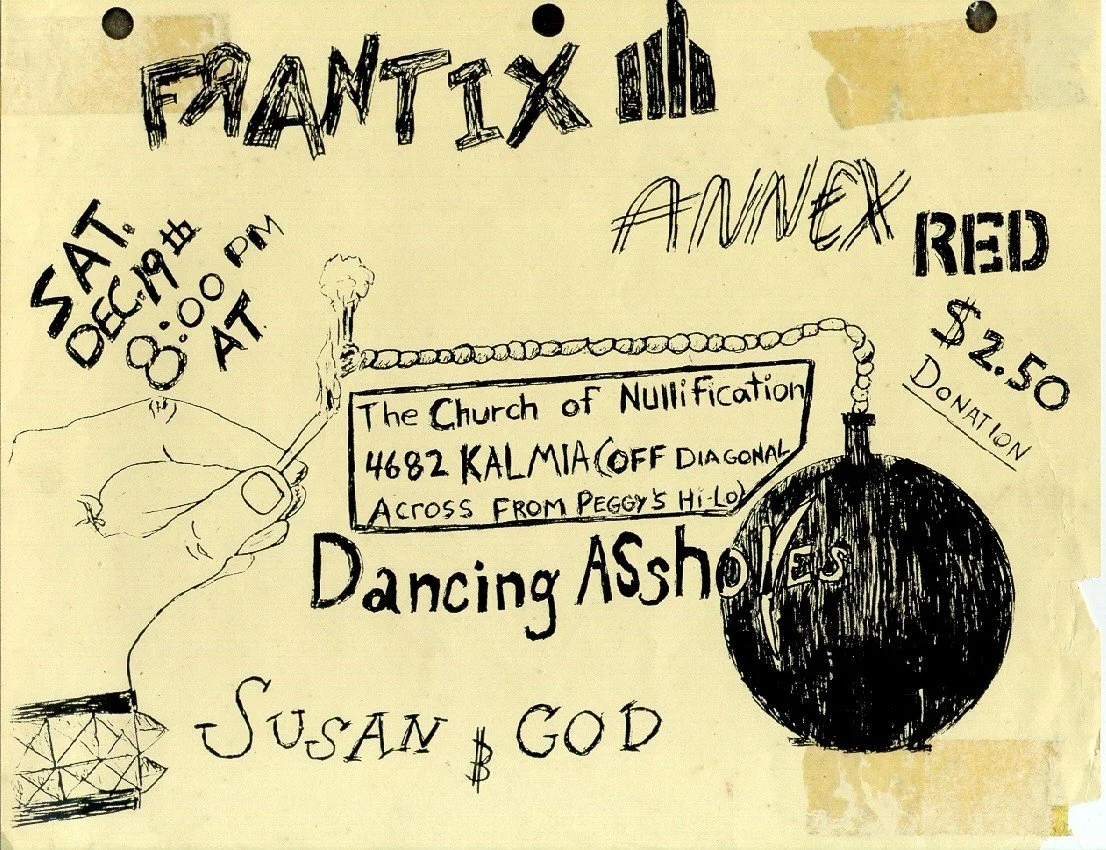 FRANTIX
ANNEX
RED
SAT.
DEC. 19th
8:00 PM
AT
$2.50
DONATION
The Church of Nullification
4682 KALMIA (OFF DIAGONAL
ACROSS FROM PEGGY'S Hi-Lo)
Dancing ASsholes
SUSAN $ GOD